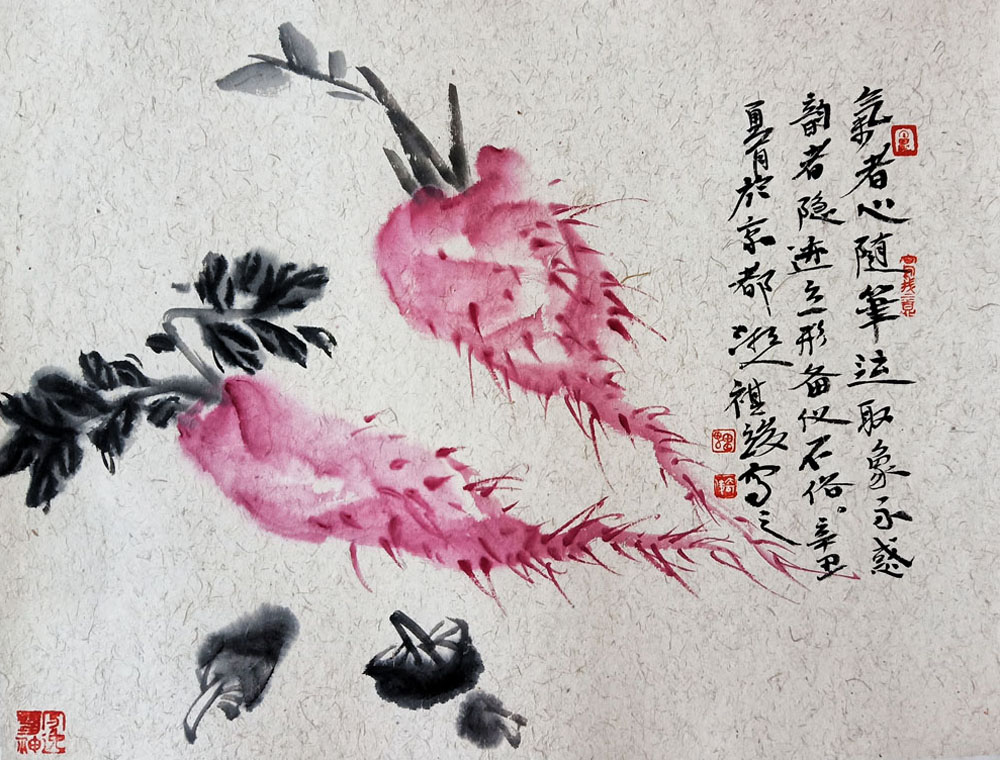 氣者心随筆运取象不惑
韵者隐迹立形备仪不俗。辛丑
夏月於京都祺竣写之